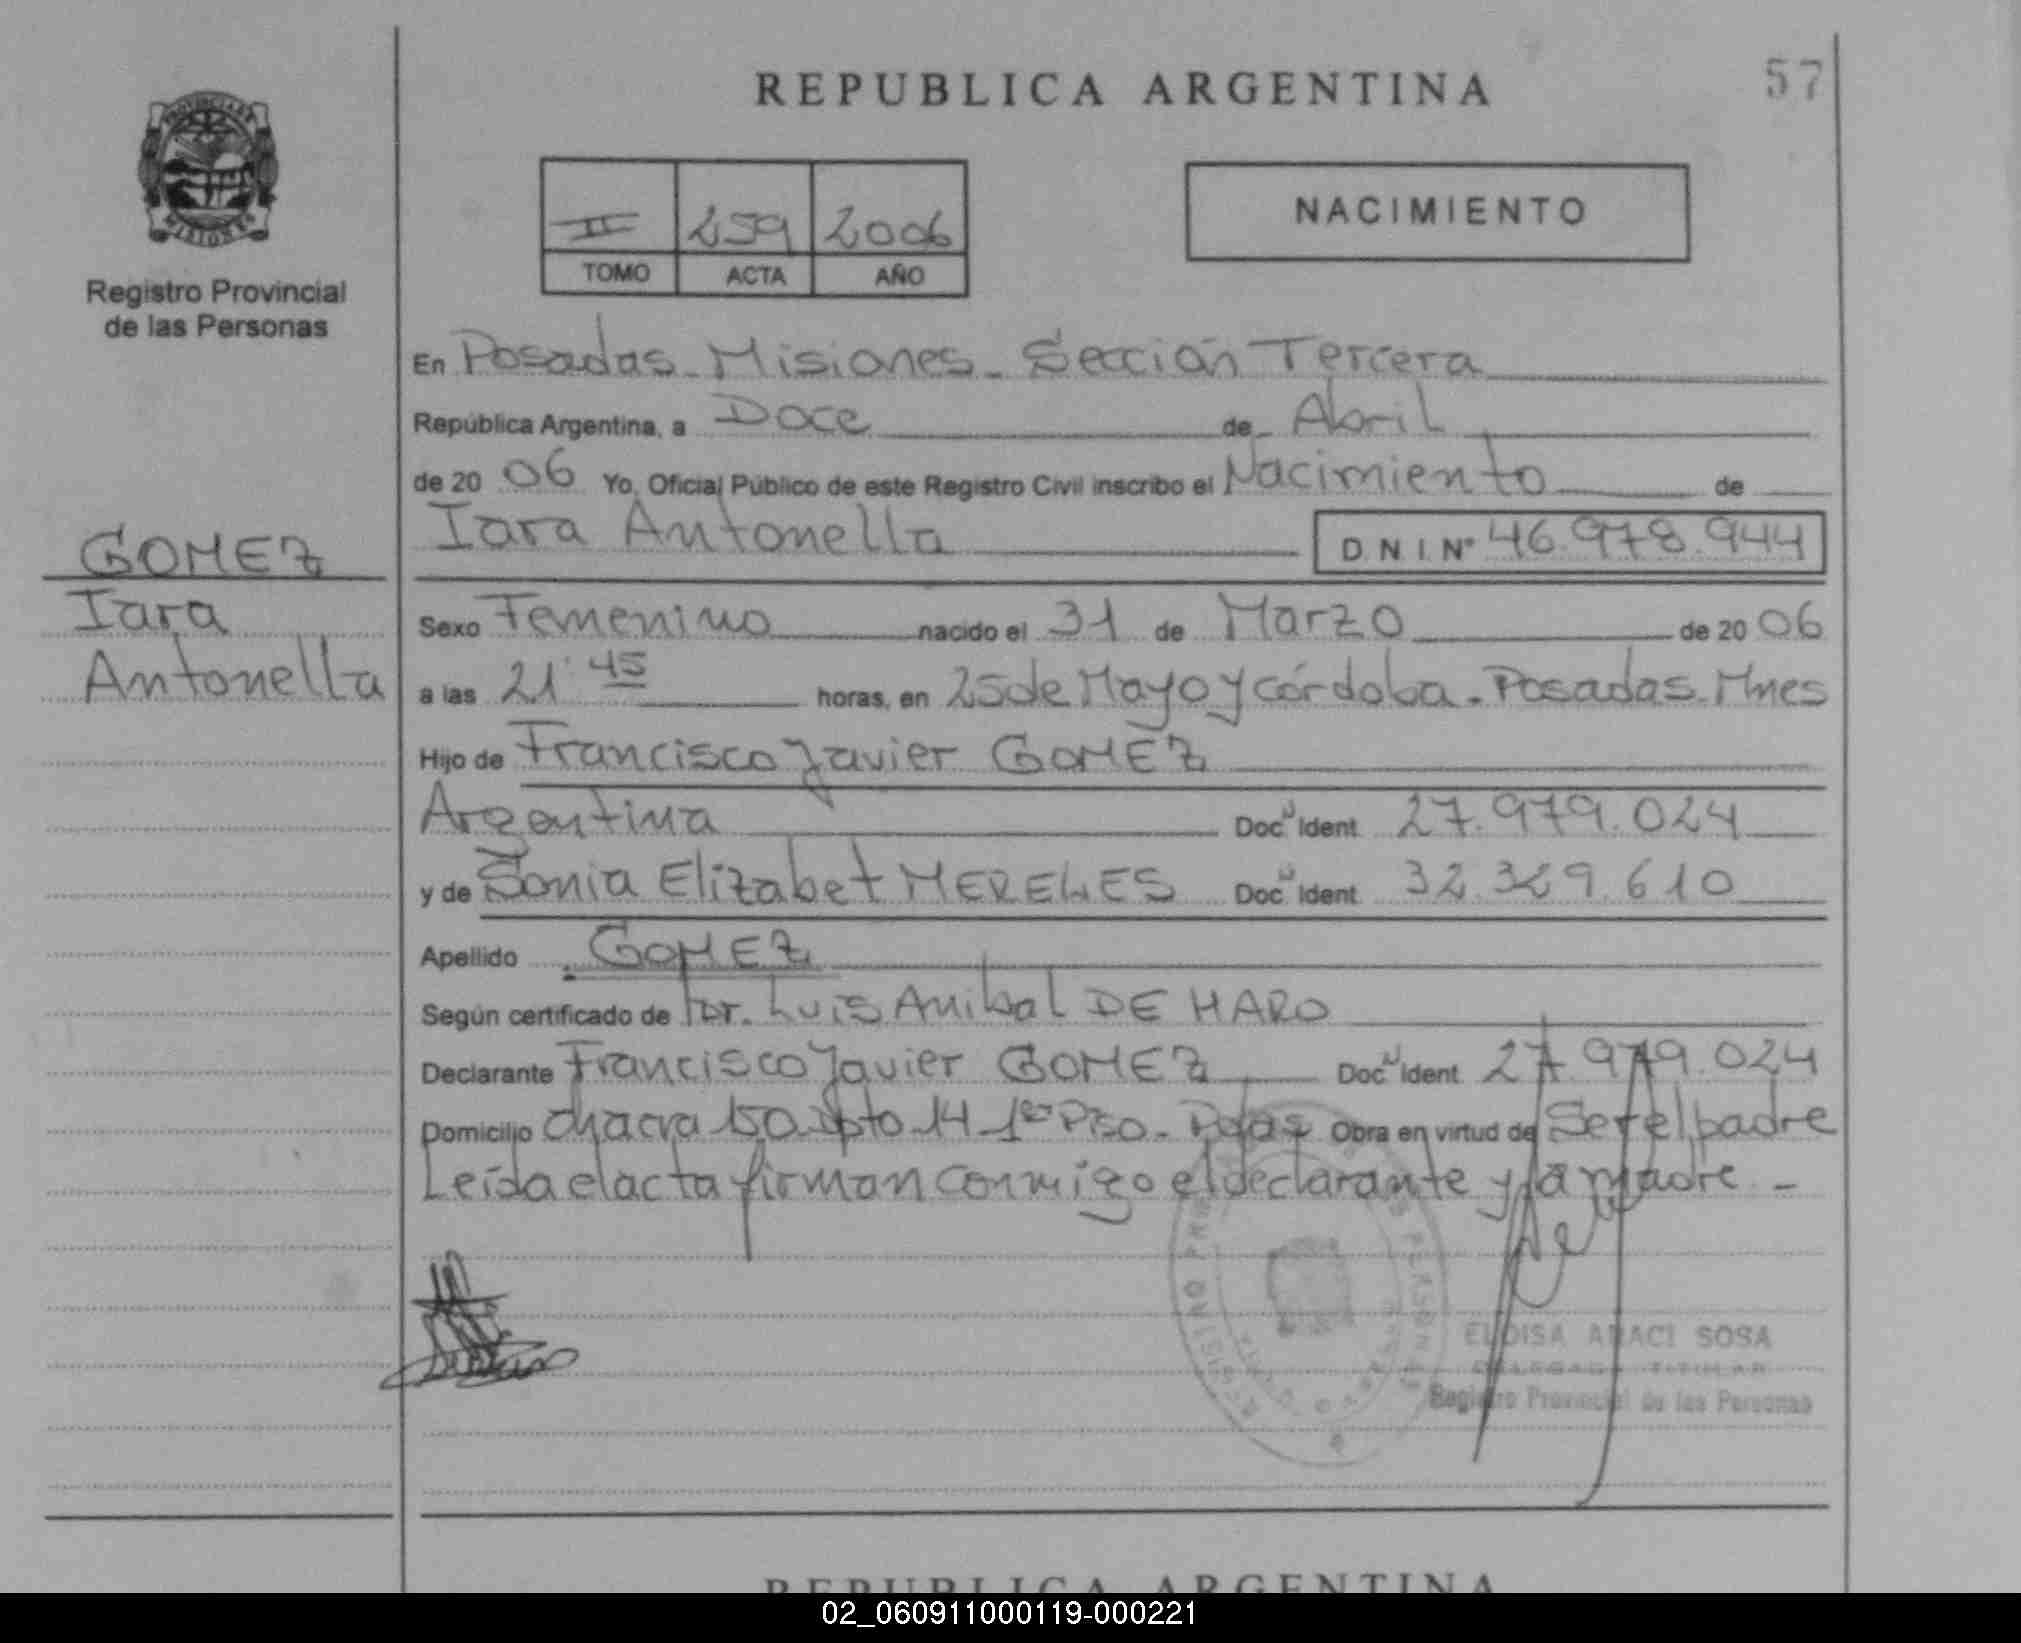 REPUBLICA ARGENTINA
57
PROVINCIA DE
MISIONES
Registro Provincial
de las Personas
II 259 2006
TOMO ACTA AÑO
NACIMIENTO
En Posadas - Misiones - Sección Tercera
República Argentina, a Doce de Abril
de 20 06 Yo, Oficial Público de este Registro Civil inscribo el Nacimiento de
Iara Antonella D N I Nº 46.978.944
GOMEZ
Iara
Antonella
Sexo Femenino nacido el 31 de Marzo de 20 06
a las 21 45 horas, en 25 de Mayo y Córdoba - Posadas - Mnes
Hijo de Francisco Javier GOMEZ
Argentina Doc Ident 27.979.024
y de Sonia Elizabet MERELES Doc Ident 32.329.610
Apellido GOMEZ
Según certificado de Dr. Luis Anibal DE HARO
Declarante Francisco Javier GOMEZ Doc Ident 27.979.024
Domicilio Chacra 150 dpto 14 1er Piso - Pdas Obra en virtud de Ser el padre
Leída el acta firman conmigo el declarante y la madre -
ELOISA ANACI SOSA
DELEGADA TITULAR
Registro Provincial de las Personas
REPUBLICA ARGENTINA
02_060911000119-000221